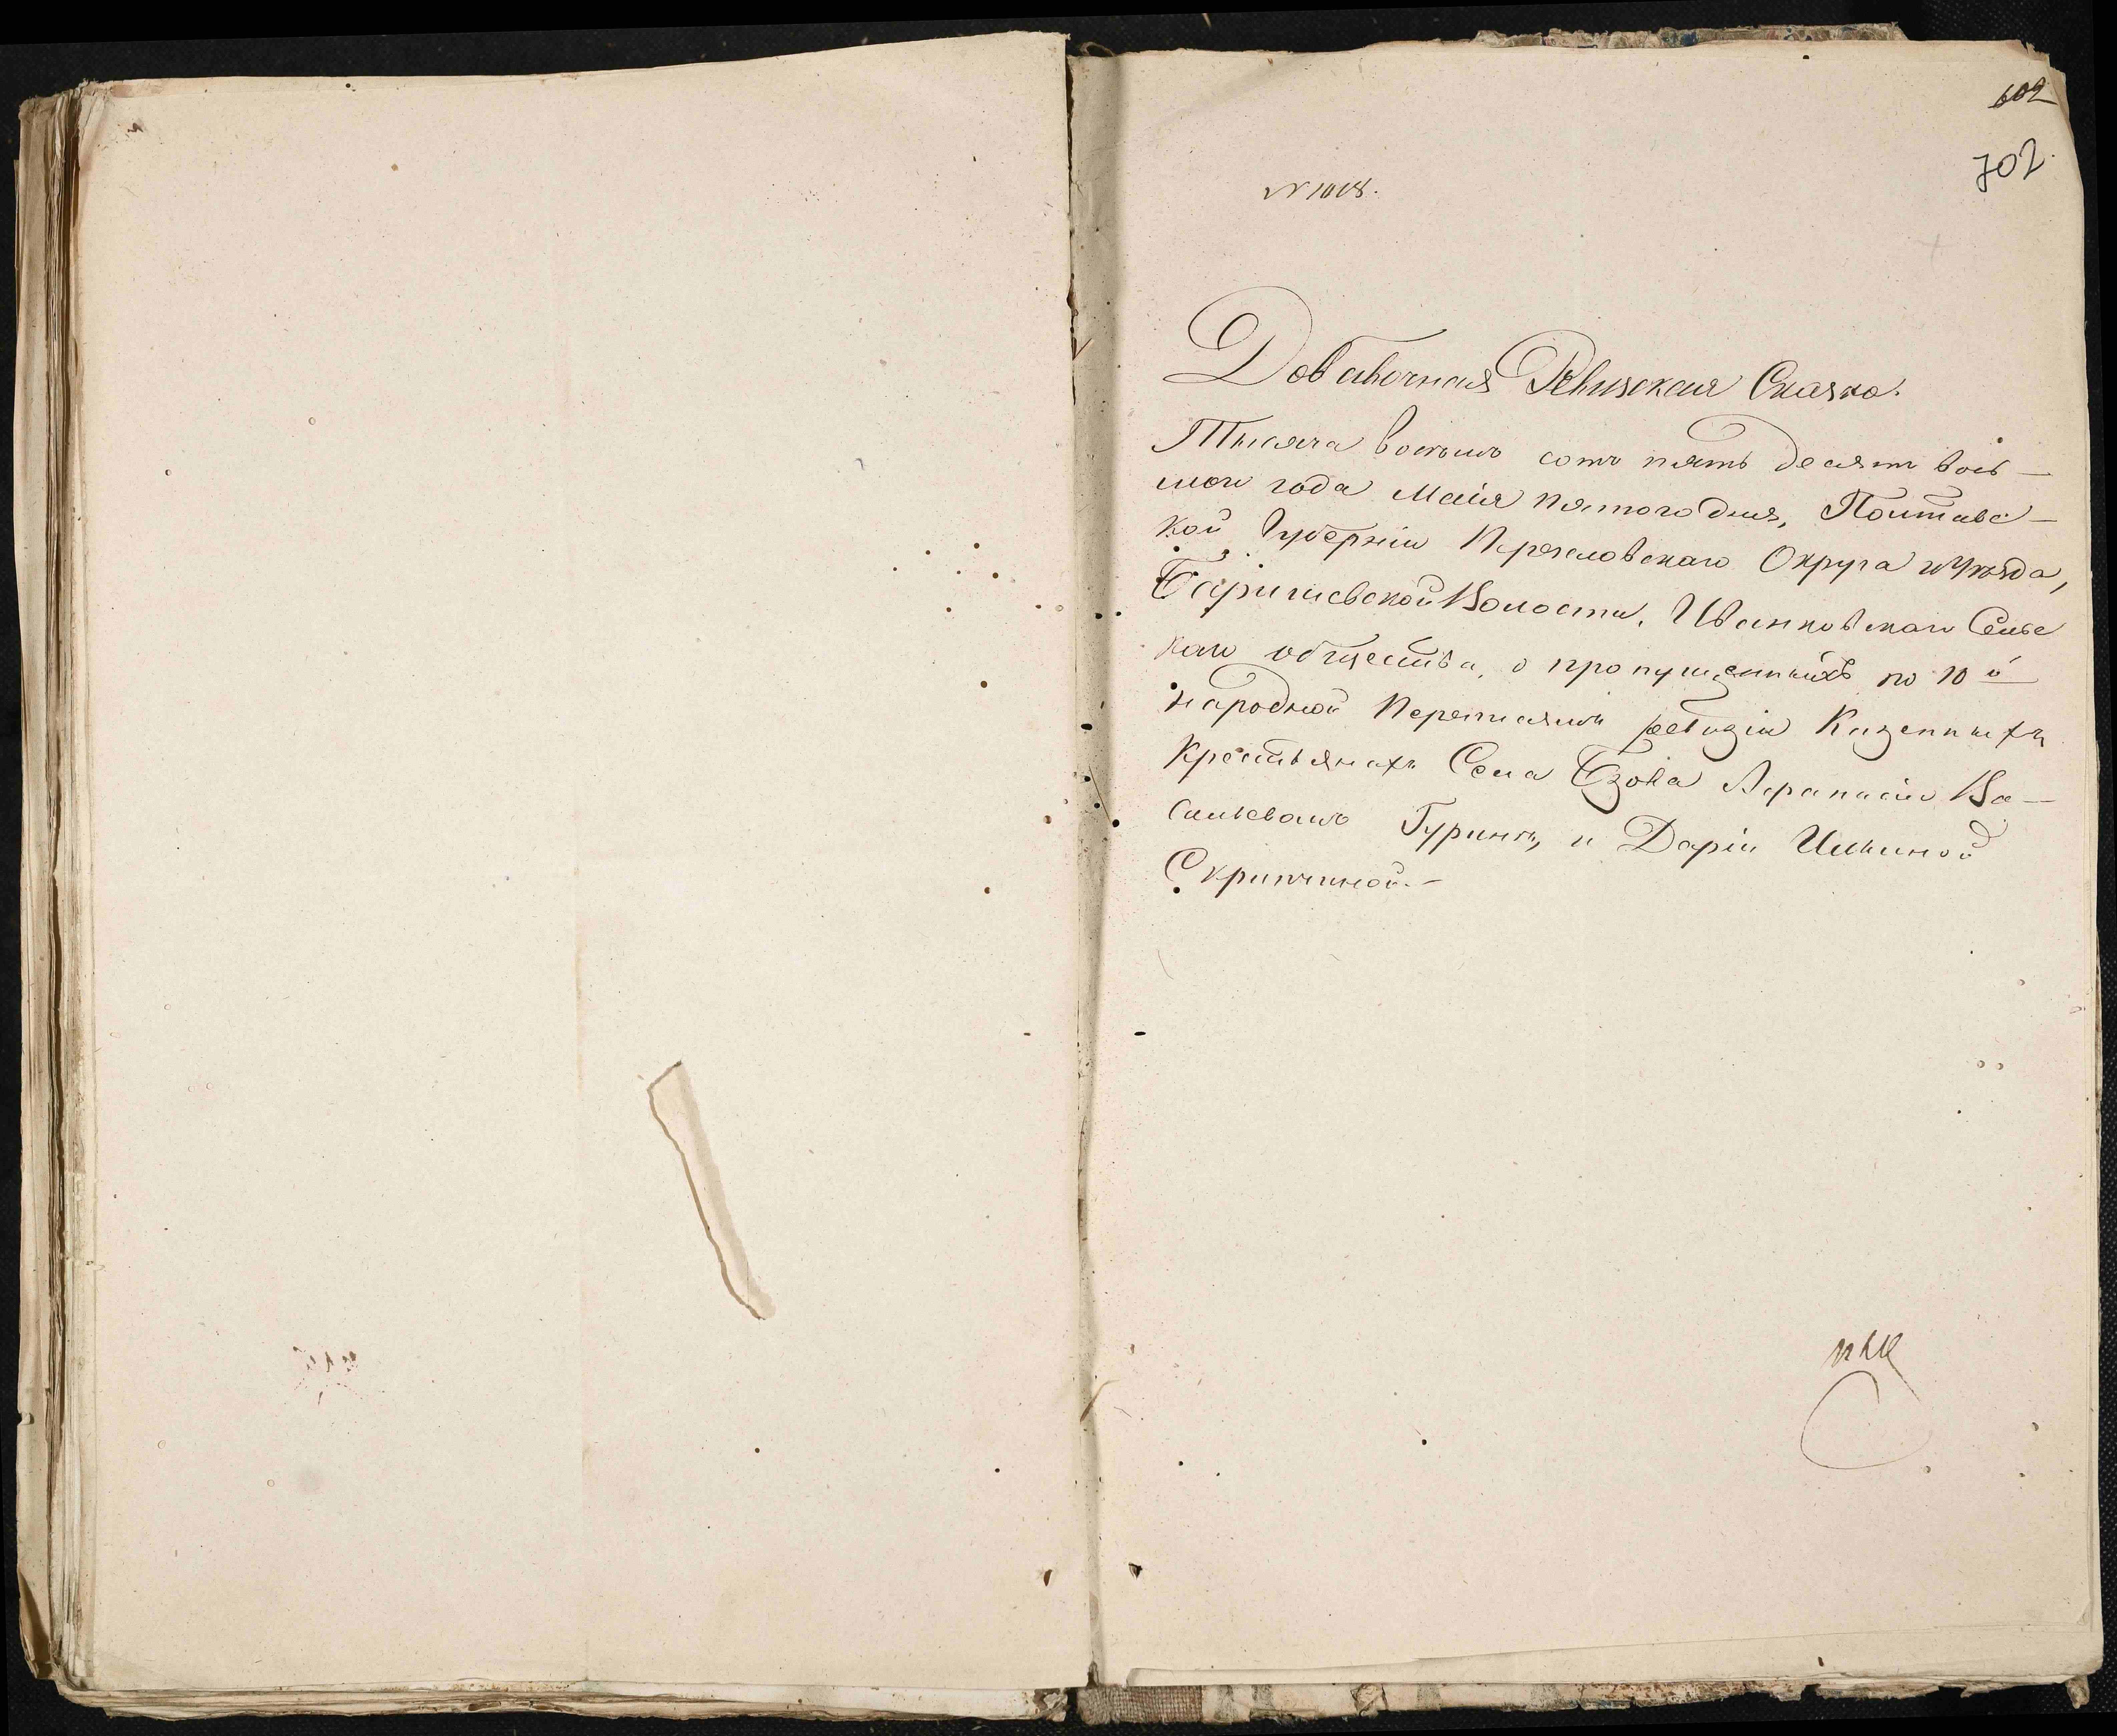 602
702.
№ 1018.
Добавочная Ревизская Сказка.
Тысяча восемь сотъ пять десятъ вось-
мои года Маія пятого дня, Полтавс-
кой Губерніи Переяславскаго Округа и Уезда,
Баришевской Волости, Иванковскаго Сельс
каго общества, о пропущенныхъ по 10й
народной Переписи ревизіи Казенныхъ
Крестьянахъ Села Бзова Афанасіи Ва-
сильевомъ Гуринъ, и Даріи Ильиной
Скрипчиной.-